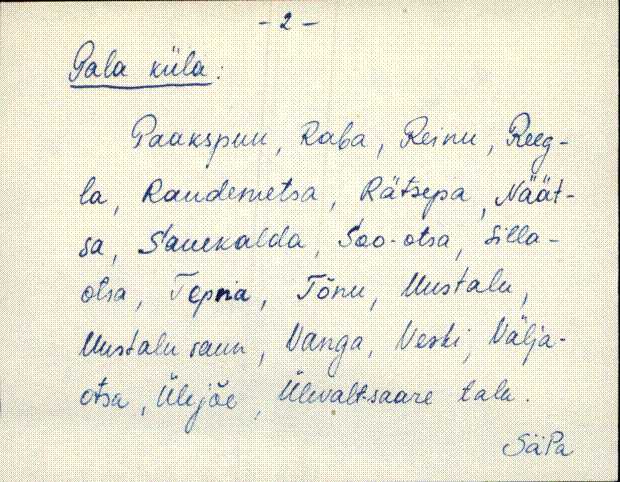 - 2 -
Pala küla:
Paakspuu, Raba, Reinu, Reeg-
la, Raudemetsa, Rätsepa, Näät-
sa, Sauekalda, Soo-otsa, Silla-
otsa, Topria, Tõnu, Uustalu,
Uustalu saun, Vanga, Veski, Välja-
otsa, Ülejõe, Ülevaltsaare talu.
SäPa